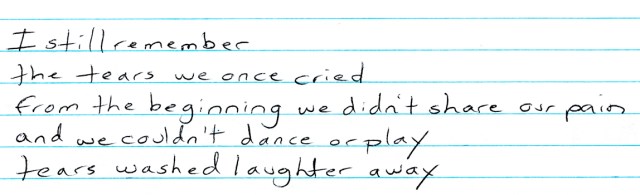 I still remember
the tears we once cried
from the beginning we didn't share our pain
and we couldn't dance or play
tears washed laughter away